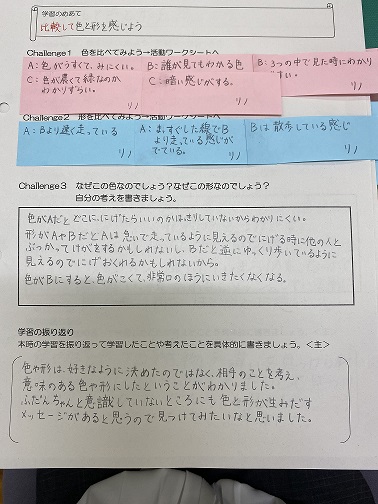 学習のめあて
比較して色と形を感じよう
Challenge1 色を比べてみよう→活動ワークシートへ
A:色がうすくて、みにくい。
B:誰が見てもわかる色
B:3つの中で見た時にわかり
C:色が濃くて緑なのか
わかりずらい。
リノ
C:暗い感じがする。
リノ
すい。
リノ
Challenge2 形を比べてみよう→活動ワークシートへ
A:Bより速く走っている
リノ
A:まっすぐした線でB
より走っている感じが
でている。
リノ
Bは散歩している感じ
リノ
Challenge3 なぜこの色なのでしょう?なぜこの形なのでしょう?
自分の考えを書きましょう。
色がAだとどこに、にげたらいいのかはっきりしていないからわかりにくい。
形がAやBだとAは急いで走っているように見えるのでにげる時に他の人と
ぶつかってけがをするかもしれないし、Bだと逆にゆっくり歩いているように
見えるのでにげおくれるかもしれないから。
色がBにすると、色がこくて、非常口のほうにいきたくなくなる。
学習の振り返り
本時の学習を振り返って学習したことや考えたことを具体的に書きましょう。<主>
色や形は、好きなように決めたのではなく、相手のことを考え、
意味のある色や形にしたということがわかりました。
ふだんちゃんと意識していないところにも色と形が生みだす
メッセージがあると思うので見つけてみたいなと思いました。